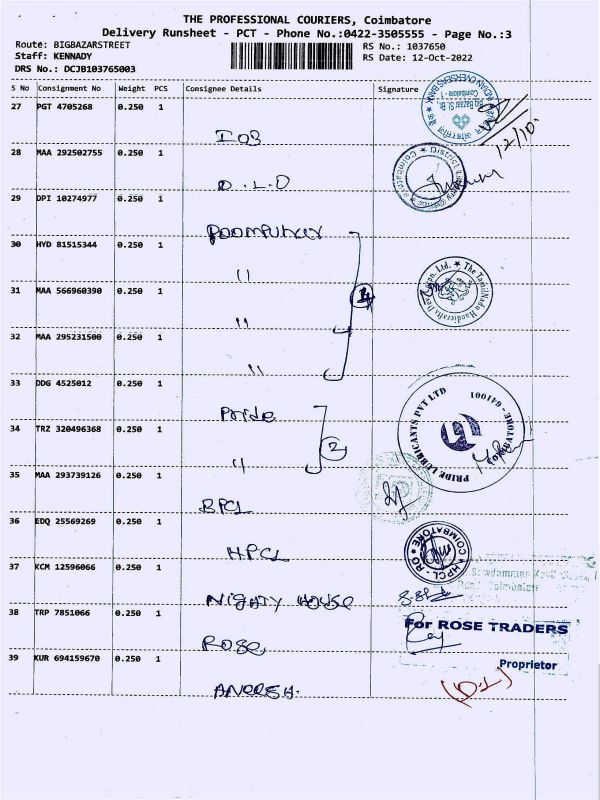 THE PROFESSIONAL COURIERS, Coimbatore
Delivery Runsheet - PCT - Phone No.:0422-3505555 - Page No.:3
Route: BIGBAZARSTREET
Staff: KENNADY
DRS No.: DCJB103765003
RS No.: 1037650
RS Date: 12-Oct-2022
S No Consignment No Weight PCS Consignee Details Signature
27 PGT 4705268 0.250 1
IOB
INDIAN OVERSEAS BANK
Big Bazaar St. Br.
Coimbatore - 1
12/10
28 MAA 292502755 0.250 1
D.L.O
District
Coimbatore
29 DPI 10274977 0.250 1
Poompuhar
30 HYD 81515344 0.250 1
"
31 MAA 566960390 0.250 1
"
4
The TamilNadu Handicrafts Dev. Corpn. Ltd.
32 MAA 295231500 0.250 1
"
33 DDG 4525012 0.250 1
Pride
34 TRZ 320496368 0.250 1
"
2
PRIDE LUBRICANTS PVT LTD
COIMBATORE - 641001
35 MAA 293739126 0.250 1
BPCL
36 EDQ 25569269 0.250 1
HPCL
HPCL - RO
COIMBATORE
37 KCM 12596066 0.250 1
NIGHTY HOUSE
38 TRP 7851066 0.250 1
Rose
For ROSE TRADERS
Proprietor
39 KUR 694159670 0.250 1
(D.L)